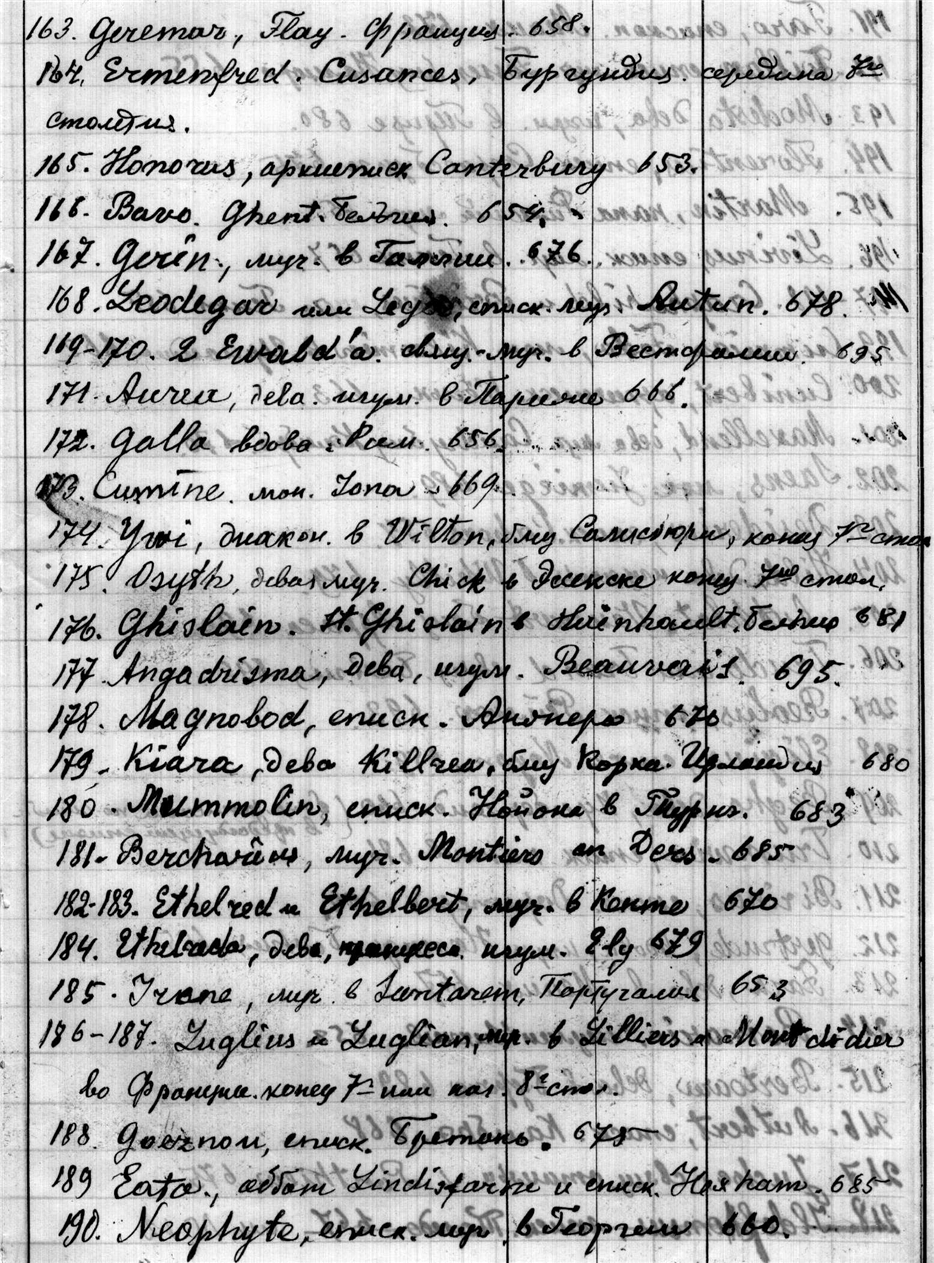 163. Geremar, Flay. Франция. 658.
164. Ermenfred. Cusances, Бургундия. середина 7го
столетия.
165. Honorus, архиеписк Canterbury 653.
166. Bavo. Ghent. Бельгия. 654.
167. Gerin., муч. в Галлии. 676.
168. Leodegar или Leger, еписк. муч. Autun. 678.
169-170. 2 Ewald'а. свящ.-муч. в Вестфалии. 695
171. Aurea, дева. игум. в Париже 666.
172. Galla вдова. Рим. 656.
173. Cumine. мон. Iona - 669.
174. Ywi, диакон. в Wilton, близ Салисбюри, конец 7го стол
175. Osyth, дева муч. Chick в Эссексе конец 7го стол.
176. Ghislain. St. Ghislain в Hainhault. Бельгия 681
177. Angadrisma, дева, игум. Beauvais. 695.
178. Magnobod, еписк. Анжера 670
179. Kiara, дева Killrea, близ Корка. Ирландия 680
180. Mummolin, еписк. Нойона в Турнэ. 683
181. Bercharius, муч. Montiero en Ders. 685
182-183. Ethelred и Ethelbert, муч. в Кенте 670
184. Ethelrada, дева, принцесса игум. Ely 679
185. Irene, муч. в Santarem, Португалия 653
186-187. Luglius и Luglian, мч. в Lilliers и Mont didier
во Франции. конец 7го или нач. 8го стол.
188. Goeznou, еписк. Бретань. 675
189 Eata., аббат Lindisfarne и еписк. Hexham. 685
190. Neophyte, еписк. муч. в Георгии 660.